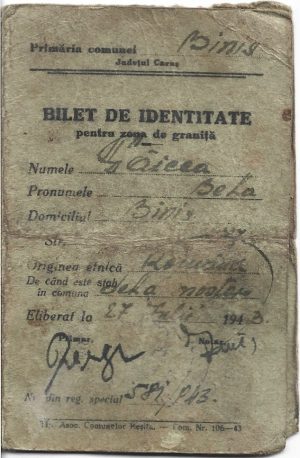 Primăria comunei Binis
Județul Caraș
BILET DE IDENTITATE
pentru zona de graniță
Numele
Pronumele Beta
Domiciliul Binis
Str.
Originea etnică Română
De când este stab.
în comuna
Eliberat la 27 Iulie 1943
Primar, Notar,
Nr. din reg. special 581/943.
Tip. Asoc. Comunelor Reșița. — Com. Nr. 106—43